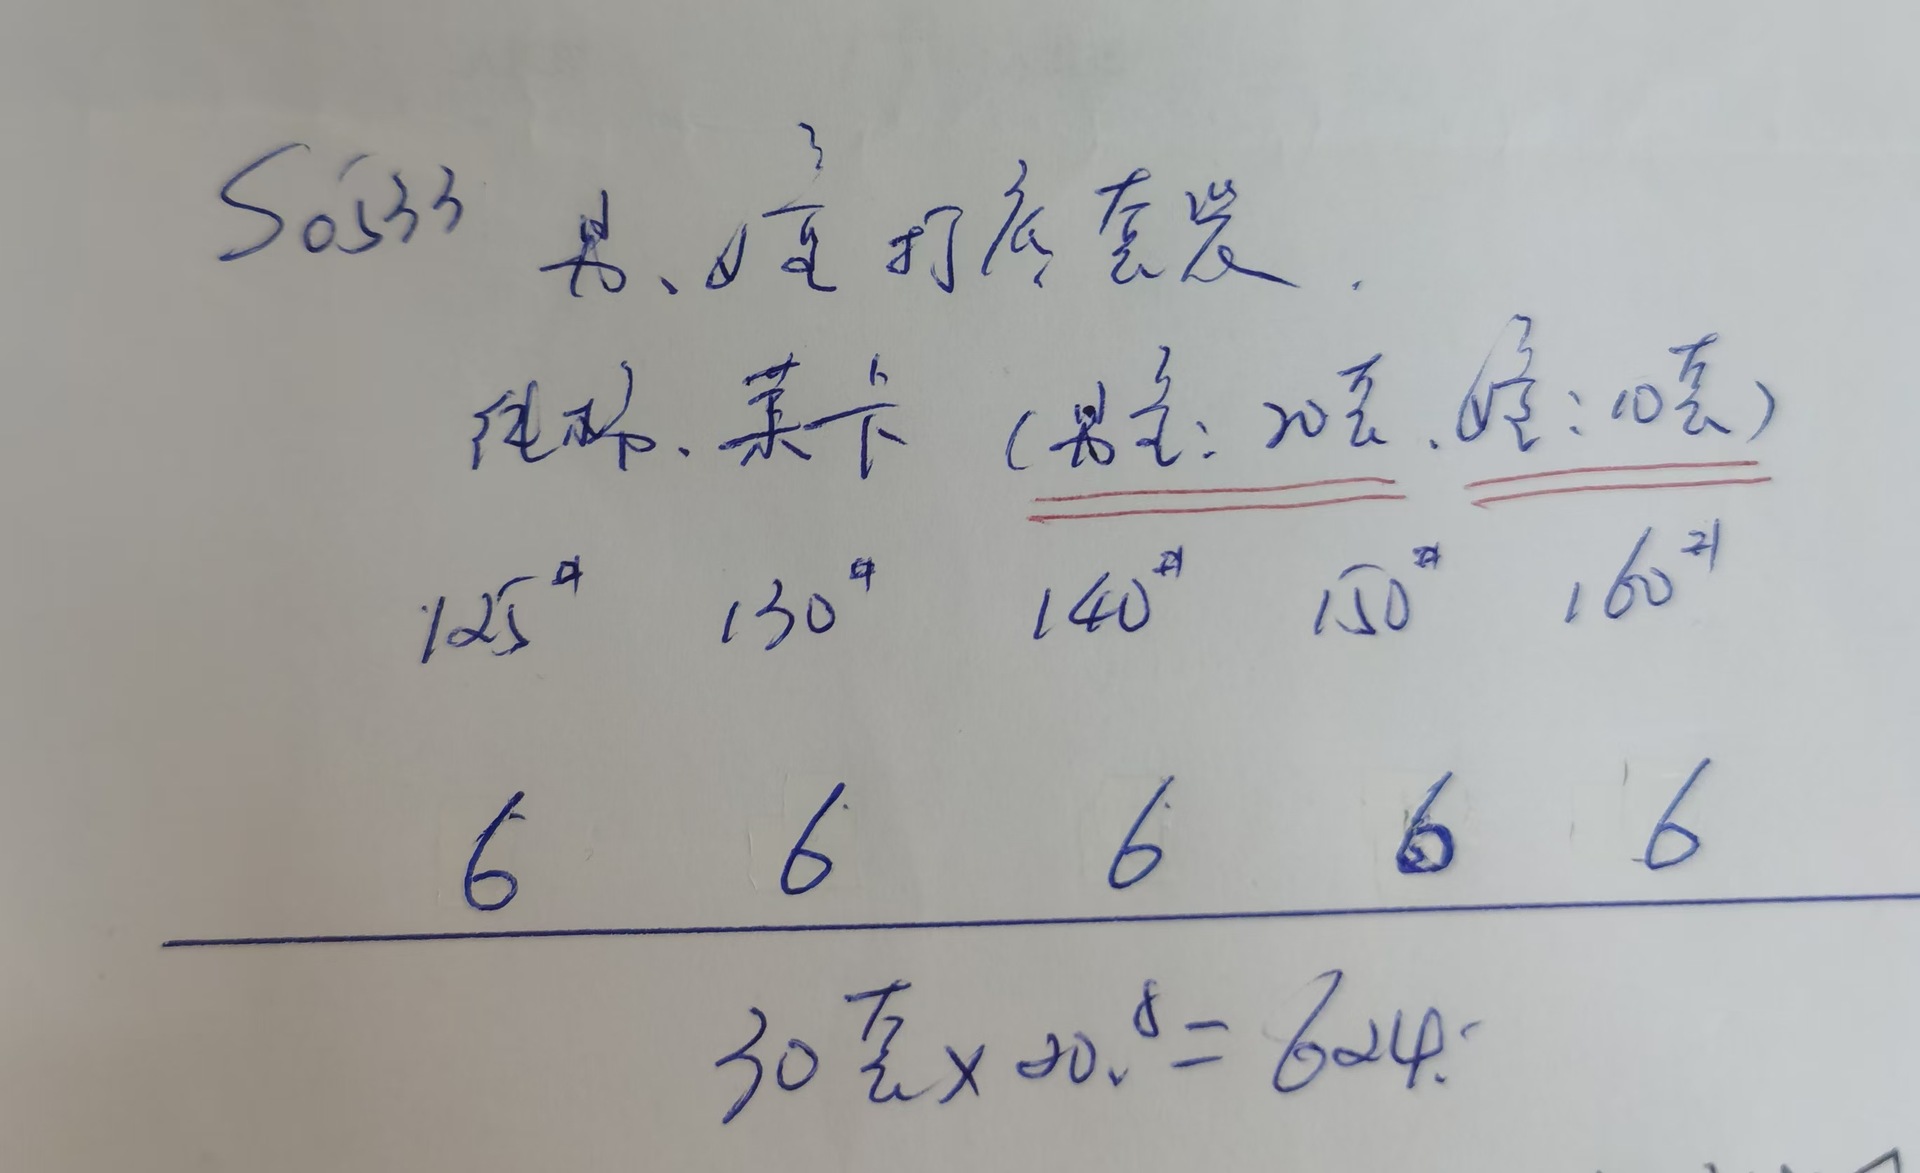 S0533 男、女童打底套装.
纯棉、莱卡 (男童: 20套、女童: 10套)
125# 130# 140# 150# 160#
6 6 6 6 6
30套×20.8=624.